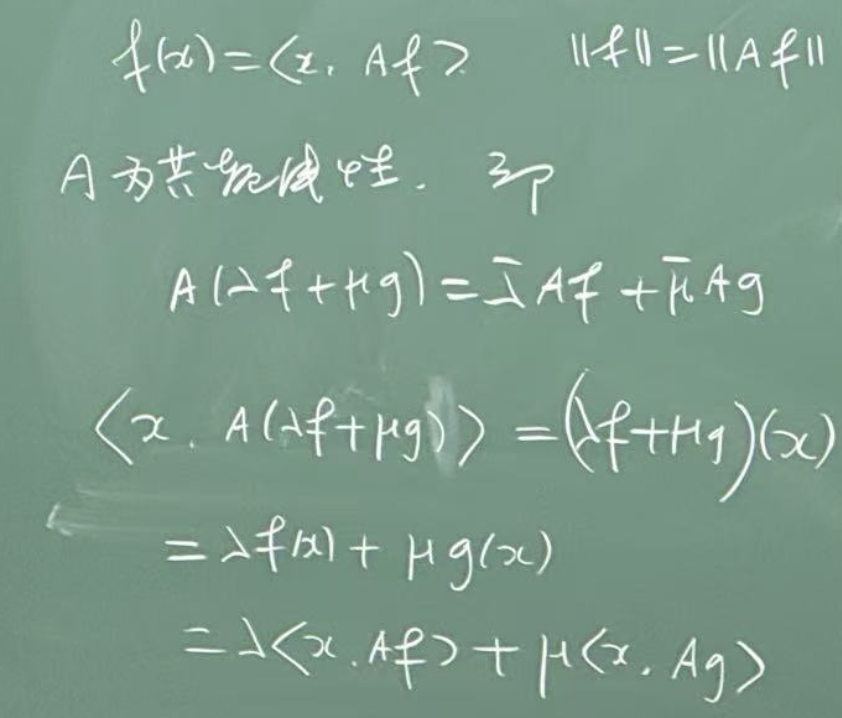 f(x)=<x, Af> ||f||=||Af||
A为共轭线性. 即
A(λf+μg)=λ̄Af+μ̄Ag
<x, A(λf+μg)>=(λf+μg)(x)
=λf(x)+μg(x)
=λ<x, Af>+μ<x, Ag>